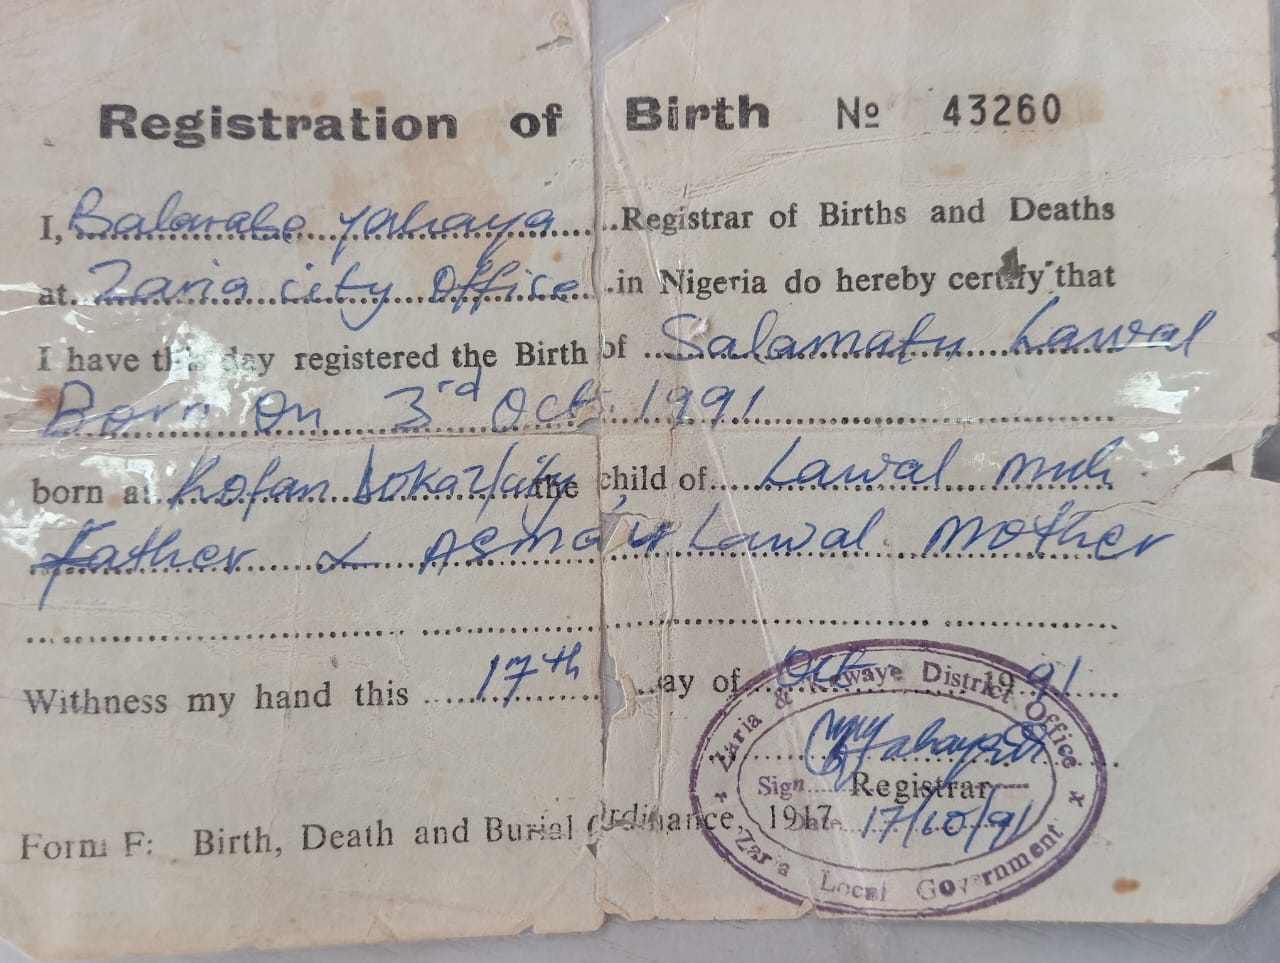 Registration of Birth № 43260
I, Balarabe Yahaya Registrar of Births and Deaths
at Zaria city Office in Nigeria do hereby certify that
I have this day registered the Birth of Salamatu Lawal
Born On 3rd Oct. 1991
born at Kofan Doka Z/city the child of Lawal Muh.
Father & Asma'u Lawal Mother
Withness my hand this 17th day of Oct 19 91
Yahaya
Registrar
Form F: Birth, Death and Burial Ordinance, 1917
Zaria & District Office
Sign
Date 17/10/91
Zaria Local Government